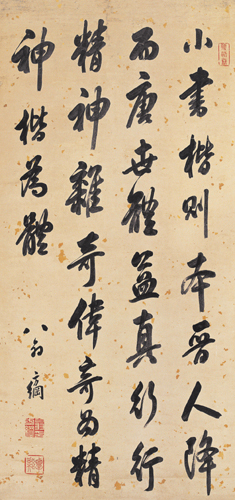 小書楷則本晋人降
而唐世體益真行行
精神雖奇偉奇為精
神楷為體
翁方綱